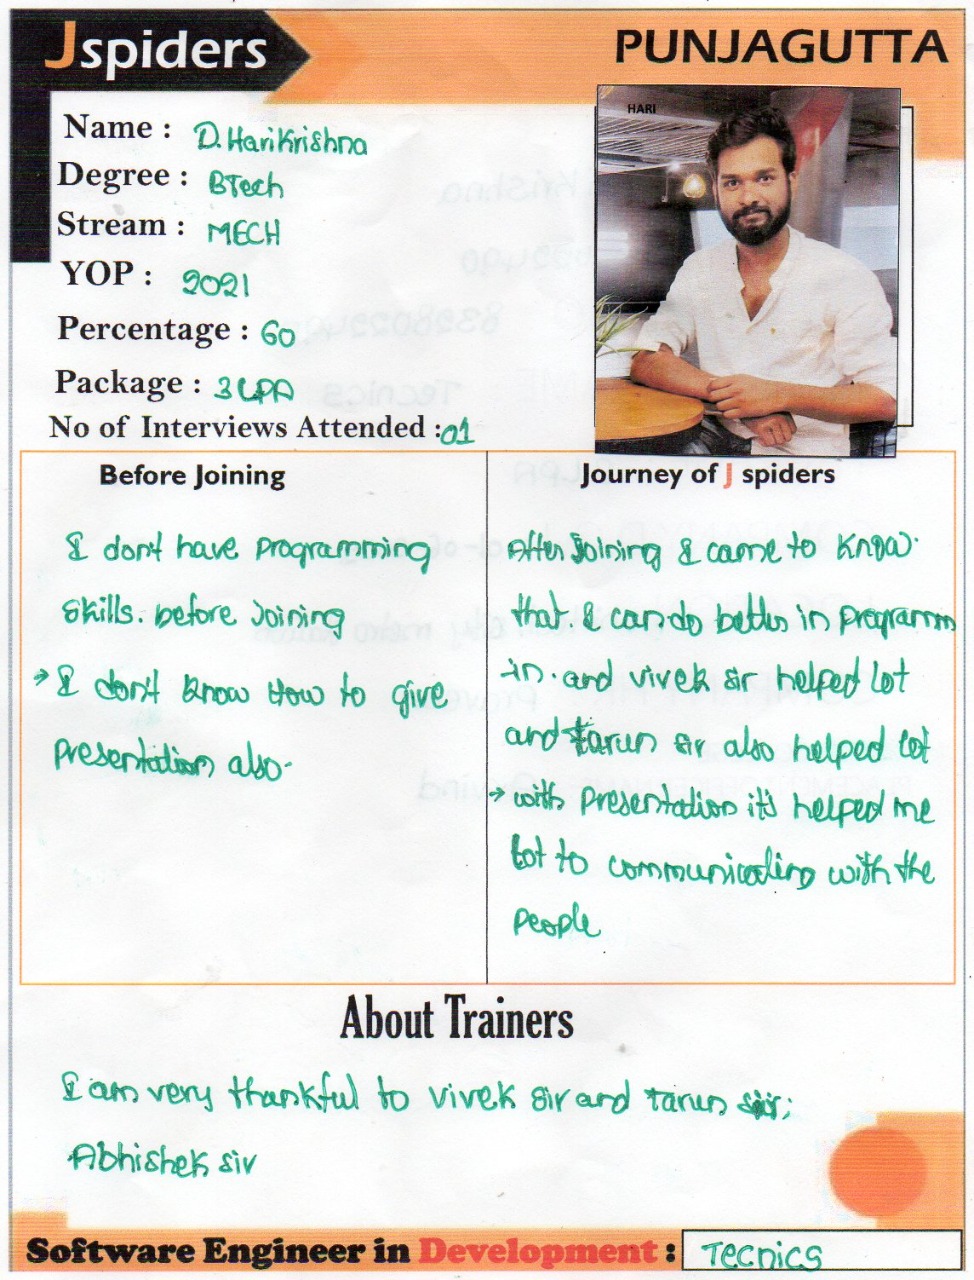 Jspiders
PUNJAGUTTA
HARI
Name : D. Hari Krishna
Degree : BTech
Stream : MECH
YOP : 2021
Percentage : 60
Package : 3 LPA
No of Interviews Attended : 01
Before Joining
I don't have programming
skills. before Joining
→ I don't know how to give
presentation also.
Journey of J spiders
After Joining I came to know.
that I can do better in programm
in. and vivek sir helped lot
and tarun sir also helped lot
→ with presentation it's helped me
lot to communicating with the
people
About Trainers
I am very thankful to vivek sir and tarun sir;
Abhishek sir
Software Engineer in Development : Tecnics